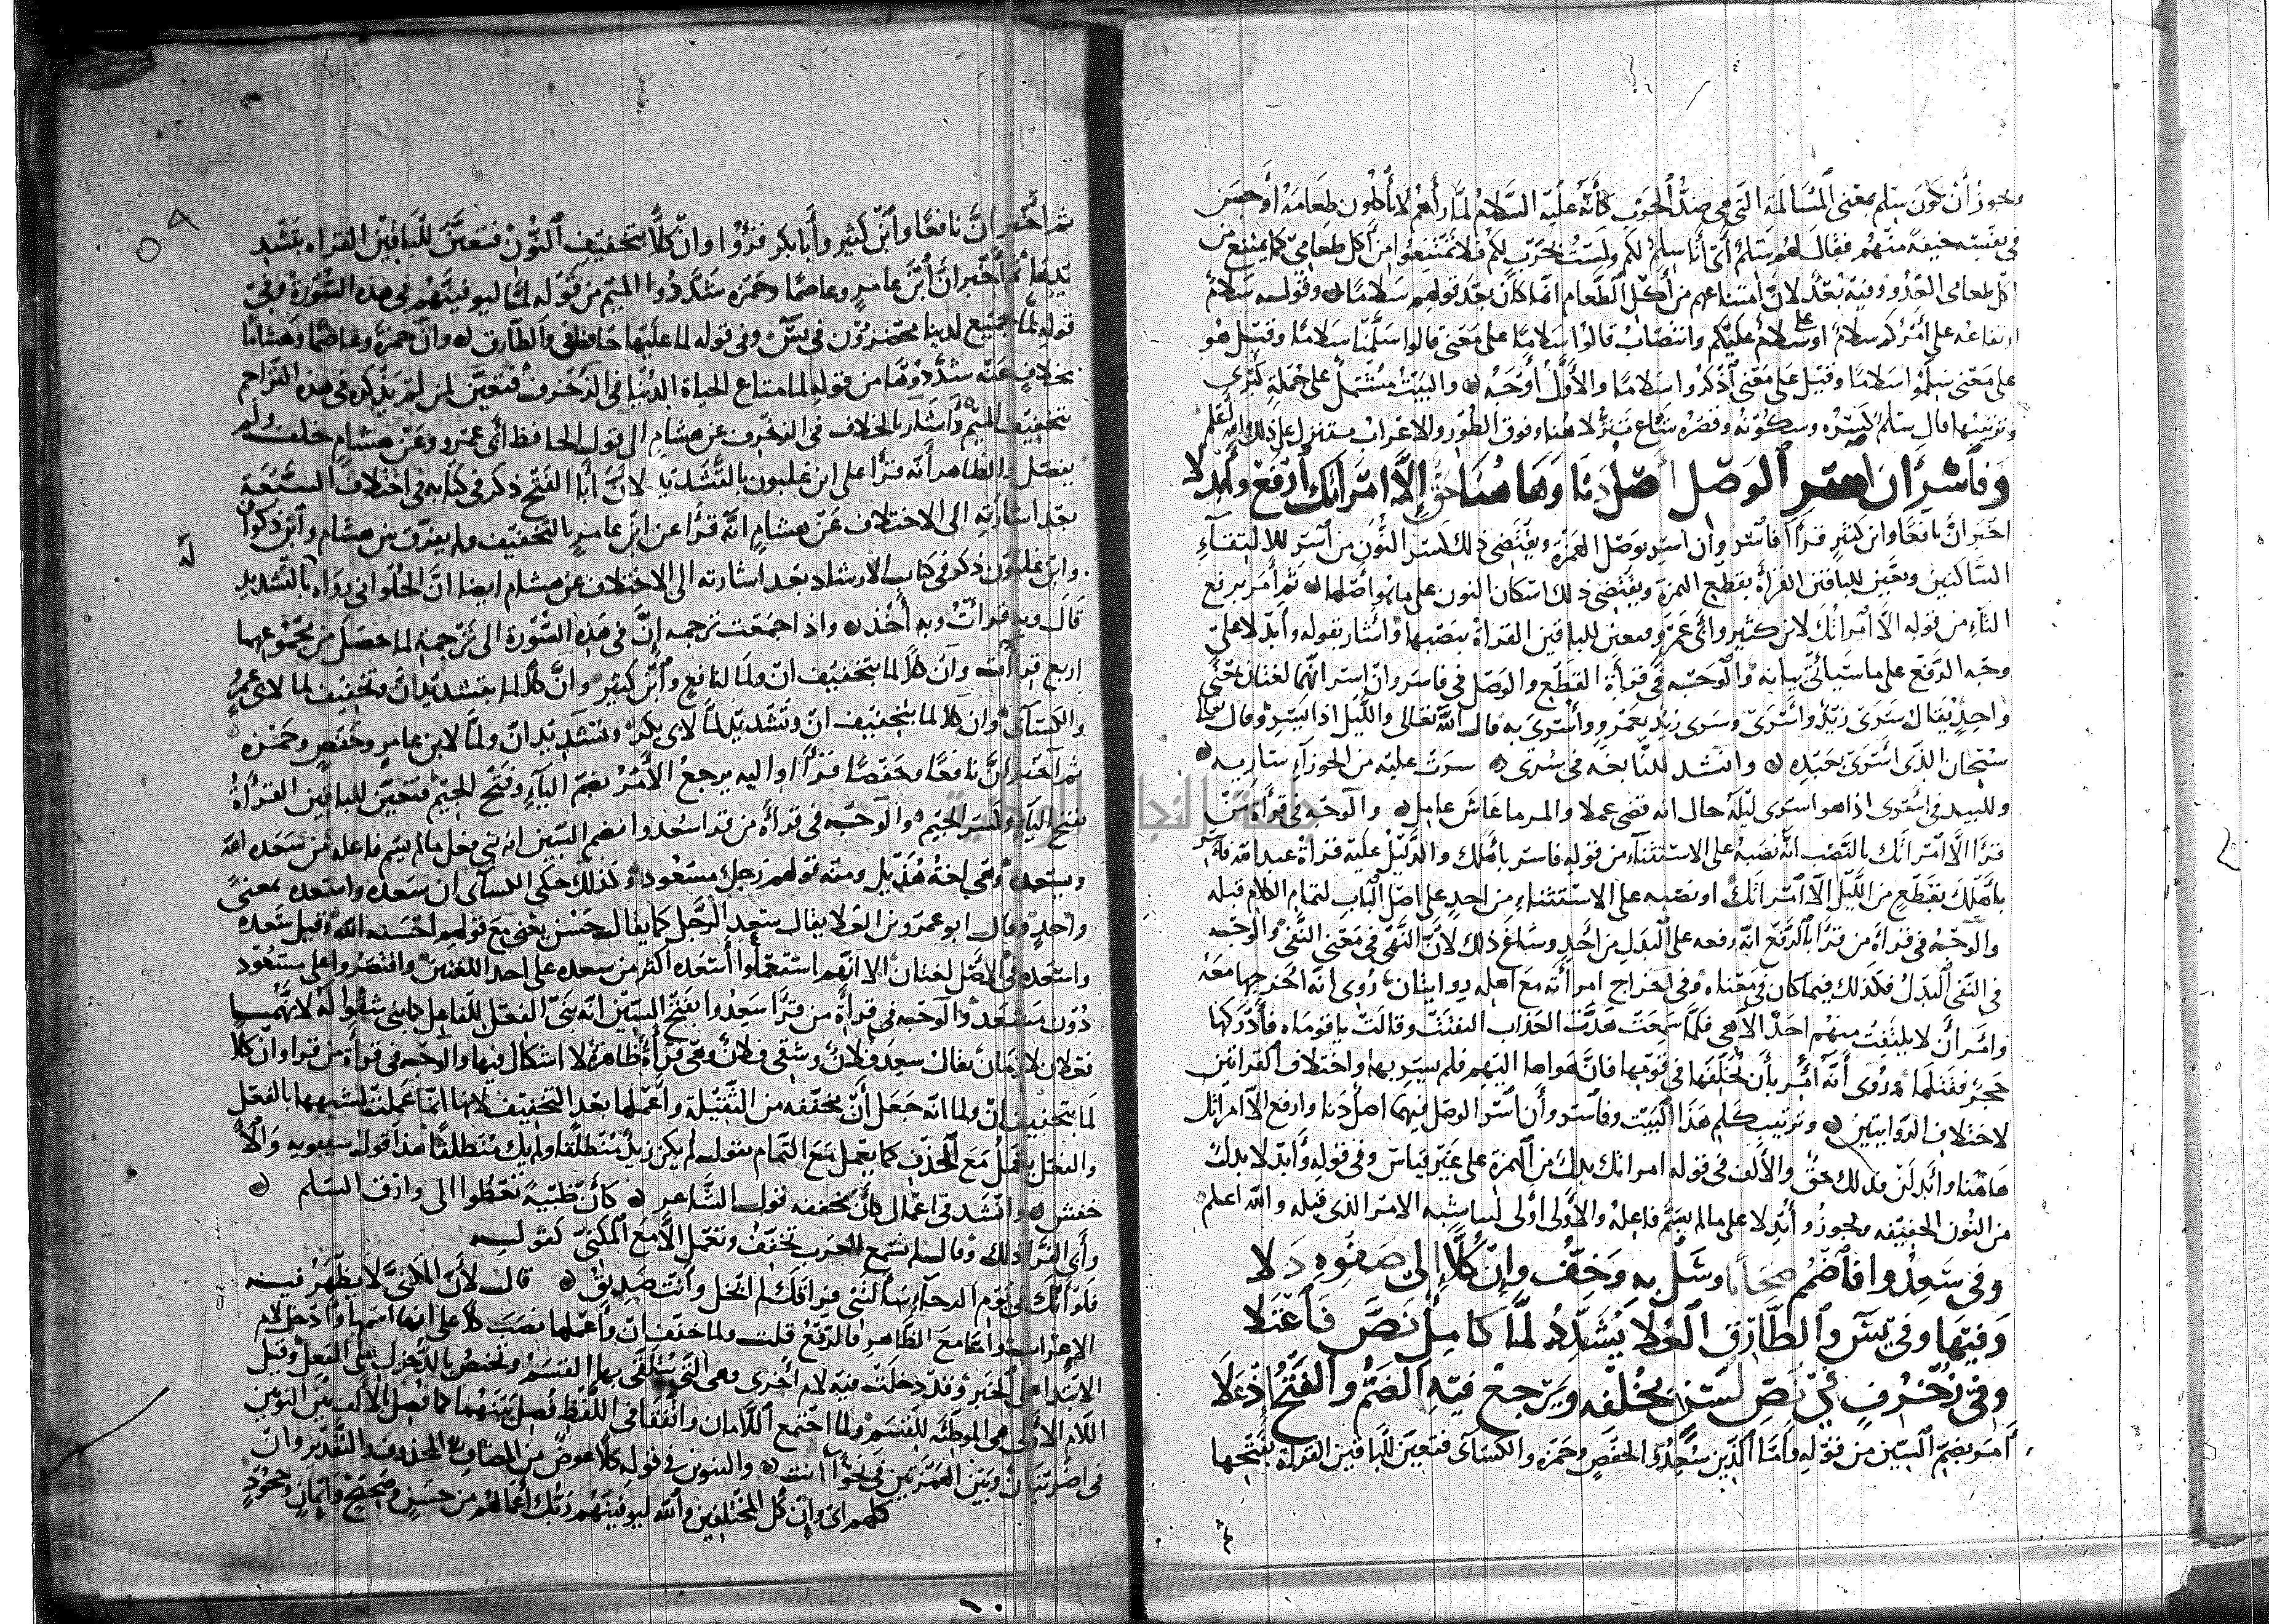 ويجوز أن يكون سلم بمعنى المسالمة التي هي ضد الحرب كأنه عليه السلام لما رآهم لا يأكلون طعامه أوجس
في نفسه خيفة منهم فقال لهم سلم أي أنا سلم لكم ولست بحرب لكم فلا تمتنعوا من أكل طعامي كما يمتنع من
أكل طعامي العدو وفيه بعد لأن امتناعهم من أكل الطعام انما كان بعد قولهم سلاما وقوله سلام
ارتفاعه على أمركم سلام او سلام عليكم وانتصاب قالوا سلاما على معنى قالوا سلمنا سلاما وقيل هو
على معنى سلموا سلاما وقيل على معنى اذكروا سلاما والأول أوجه والبيت مشتمل على جملة كبرى
وترتيبها قال سلم كسره وسكونه وقصره شاع تنزلا هنا وفوق الطور والاعراب مستنزل على ذلك
وفاسر أن اسر الوصل أصل دنا وها هنا حق إلا امراتك ارفع وأبدلا
اخبر ان نافعا وابن كثير قرأا فاسر وان اسر بوصل الهمزة ويقتضي ذلك كسر النون من اسر للالتقاء
الساكنين وتعين للباقين القراة بقطع الهمزة ويقتضي ذلك اسكان النون على ما هو اصلها ثم أمر برفع
التاء من قوله الا امراتك لابن كثير وابي عمرو وتعين للباقين القراة بنصبها واشار بقوله وأبدلا على
وجه الرفع على ما سيأتي بيانه والوجه في قراة القطع والوصل في فاسر وان اسر انهما لغتان بمعنى
واحد يقال سرى زيد وأسرى وسرى زيد بعمرو وأسرى به قال الله تعالى والليل اذا يسر وقال تعالى
سبحان الذي اسرى بعبده وانشد للنابغه في سرى سرت عليه من الجوزاء سارية
وللبيد في أسرى اذا هو اسرى ليلة خال انه قضى عملا والمر ما عاش عامل والوجه في قراة من
قرأ الا امراتك بالنصب انه نصبه على الاستثناء من قوله فاسر باهلك والدليل عليه قراة عبد الله فاسر
باهلك بقطع من الليل الا امراتك او نصبه على الاستثناء من احد على اصل الباب لتمام الكلام قبله
والوجه في قراة من قرأ بالرفع انه رفعه على البدل من أحد وساغ ذلك لأن النهي في معنى النفي والوجه
في النفي البدل فكذلك فيما كان في معناه وفي اخراج امرأته مع اهله روايتان روي انه اخرجها معه
وامر أن لا يلتفت منهم احد الا هي فلما سمعت هدة العذاب التفتت وقالت يا قوماه فأدركها
حجر فقتلها وروي أنه أمر بأن يخلفها في قومها فان هواها اليهم فلم يسر بها واختلاف القراتين
لاختلاف الروايتين وترتيب كلم هذا البيت وفاسر وأن اسر الوصل فيهما اصل دنا وارفع الا امراتك
هاهنا وابدلن فذلك حق والألف في قوله امراتك بدل من الهمزة على غير قياس وفي قوله وأبدلا بدل
من النون الخفيفه ويجوز وأبدلا على ما لم يسم فاعله والأولى أولى ليناسبه الامر الذي قبله والله اعلم
وفي سعدوا فاضمم صحابا وسل به وخف وإن كلا إلى صفوه دلا
وفيها وفي يس والطارق العلا يشدد لما كامل نص فاعتلا
وفي زخرف في نص لسن بخلفه ويرجع فيه الضم والفتح إذ علا
أمر بضم السين من قوله وأما الذين سعدوا لحفص وحمزه والكسائي فتعين للباقين القراة بفتحها
ثم أخبر ان نافعا وابن كثير وأبا بكر قرؤوا وان كلا بتخفيف النون فتعين للباقين القراه بتشد
يدها ثم أخبر ان ابن عامر وعاصما وحمزه شددوا الميم من قوله لما ليوفينهم في هذه السورة وفي
قوله لما جميع لدينا محضرون في يس وفي قوله لما عليها حافظ في والطارق وان حمزة وعاصما وهشاما
بخلاف عنه شددوها من قوله لما متاع الحياة الدنيا في الزخرف فتعين لمن لم يذكره في هذه التراجم
تخفيف الميم وأشار بالخلاف في الزخرف عن هشام الى قول الحافظ أبي عمرو وعن هشام خلف ولم
يفصل والظاهر أنه قرأ على ابن غلبون بالتشديد لأن أبا الفتح ذكر في كتابه في اختلاف السبعة
بعد اشارته الى الاختلاف عن هشام انه قرأ عن ابن عامر بالتخفيف ولم يفرق بين هشام وابن ذكوان
وابن غلبون ذكر في كتاب الارشاد بعد اشارته الى الاختلاف عن هشام ايضا ان الحلواني رواه بالتشديد
قال وبه قرأت وبه أخذ واذا جمعت ترجمه إن في هذه السورة الى ترجمة لما حصل من مجموعهما
اربع قراات وان كلا لما بتخفيف ان ولما لنافع وابن كثير وان كلا لما بتشديد ان وتخفيف لما لابي عمرو
والكسائي وان كلا لما بتخفيف ان وتشديد لما لابي بكر وتشديد ان ولما لابن عامر وحفص وحمزه
ثم اخبر ان نافعا وحفصا قرأا واليه يرجع الأمر بضم الياء وفتح الجيم فتعين للباقين القرأة
بفتح الياء وكسر الجيم والوجه في قراة من قرا سعدوا بضم السين انه بني فعل ما لم يسم فاعله من سعده الله
ويسعده وهي لغة هذيل ومنه قولهم رجل مسعود وكذلك حكى الكسائي ان سعده واسعده بمعنى
واحد وقال ابو عمرو بن العلا يقال سعد الرجل كما يقال حسن يعني مع قولهم احسنه الله وقيل سعده
واسعده في الاصل لغتان الا انهم استعملوا أسعده اكثر من سعده على احد اللغتين واقتصروا على مسعود
دون مسعد والوجه في قراة من قرأ سعدوا بفتح السين انه بنى الفعل للفاعل كما بني شقوا له لانهما
فعلان لازمان يقال سعد فلان وشقي فلان وهي قراة ظاهرة لا اشكال فيها والوجه في قراة من قرا وان كلا
لما بتخفيف ان ولما انه جعل ان مخففه من الثقيلة وأعملها بعد التخفيف لانها انما عملت لشبهها بالفعل
والفعل يعمل مع الحذف كما يعمل مع التمام تقول لم يكن زيد منطلقا ولم يك منطلقا هذا قول سيبويه والأ
خفش وانشد في اعمال كأن مخففه قول الشاعر كأن ظبية تعطوا الى وارق السلم
وأبى الفراذلك وقال لم نسمع العرب تخفف وتعمل الا مع المكنى كقوله
فلو أنك في يوم الرخاء سألتني فراقك لم ابخل وانت صديق قال لأن المكنى لا يظهر فيه
الاعراب واما مع الظاهر فالرفع قلت ولما خفف ان وأعملها نصب كلا على انها اسمها وادخل لام
الابتدا على الخبر وقد دخلت فيه لام أخرى وهي التي يتلقى بها القسم وتختص بالدخول على الفعل وقيل
اللام الاولى هي الموطئه للقسم ولما اجتمع اللامان واتفقا في اللفظ فصل بينهما كما فصل بالالف بين النونين
في اضربنان وبين الهمزتين في نحو أانت والتنوين في قوله كلا عوض من المضاف المحذوف والتقدير وان
كلهم اي وان كل المختلفين والله ليوفينهم ربك أعمالهم من حسن وقبيح وايمان وجحود